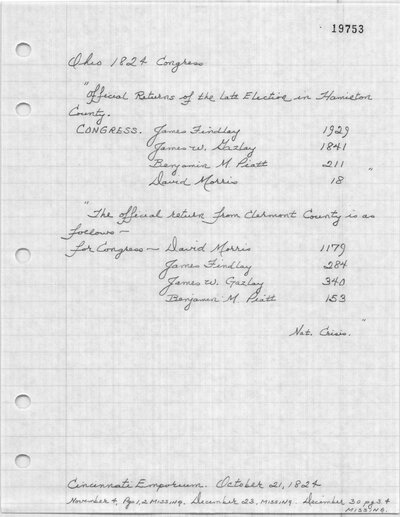 19753
Ohio 1824 Congress
"Official Returns of the late Election in Hamilton
County.
CONGRESS. James Findlay 1929
James W. Gazlay 1841
Benjamin M. Piatt 211
David Morris 18 "
"The official return from Clermont County is as
follows —
for Congress — David Morris 1179
James Findlay 284
James W. Gazlay 340
Benjamin M. Piatt 153
"
Nat. Crisis.
Cincinnati Emporium. October 21, 1824
November 4, Pgs 1, 2 MISSING. December 23, MISSING. December 30 pgs 3.4
MISSING.